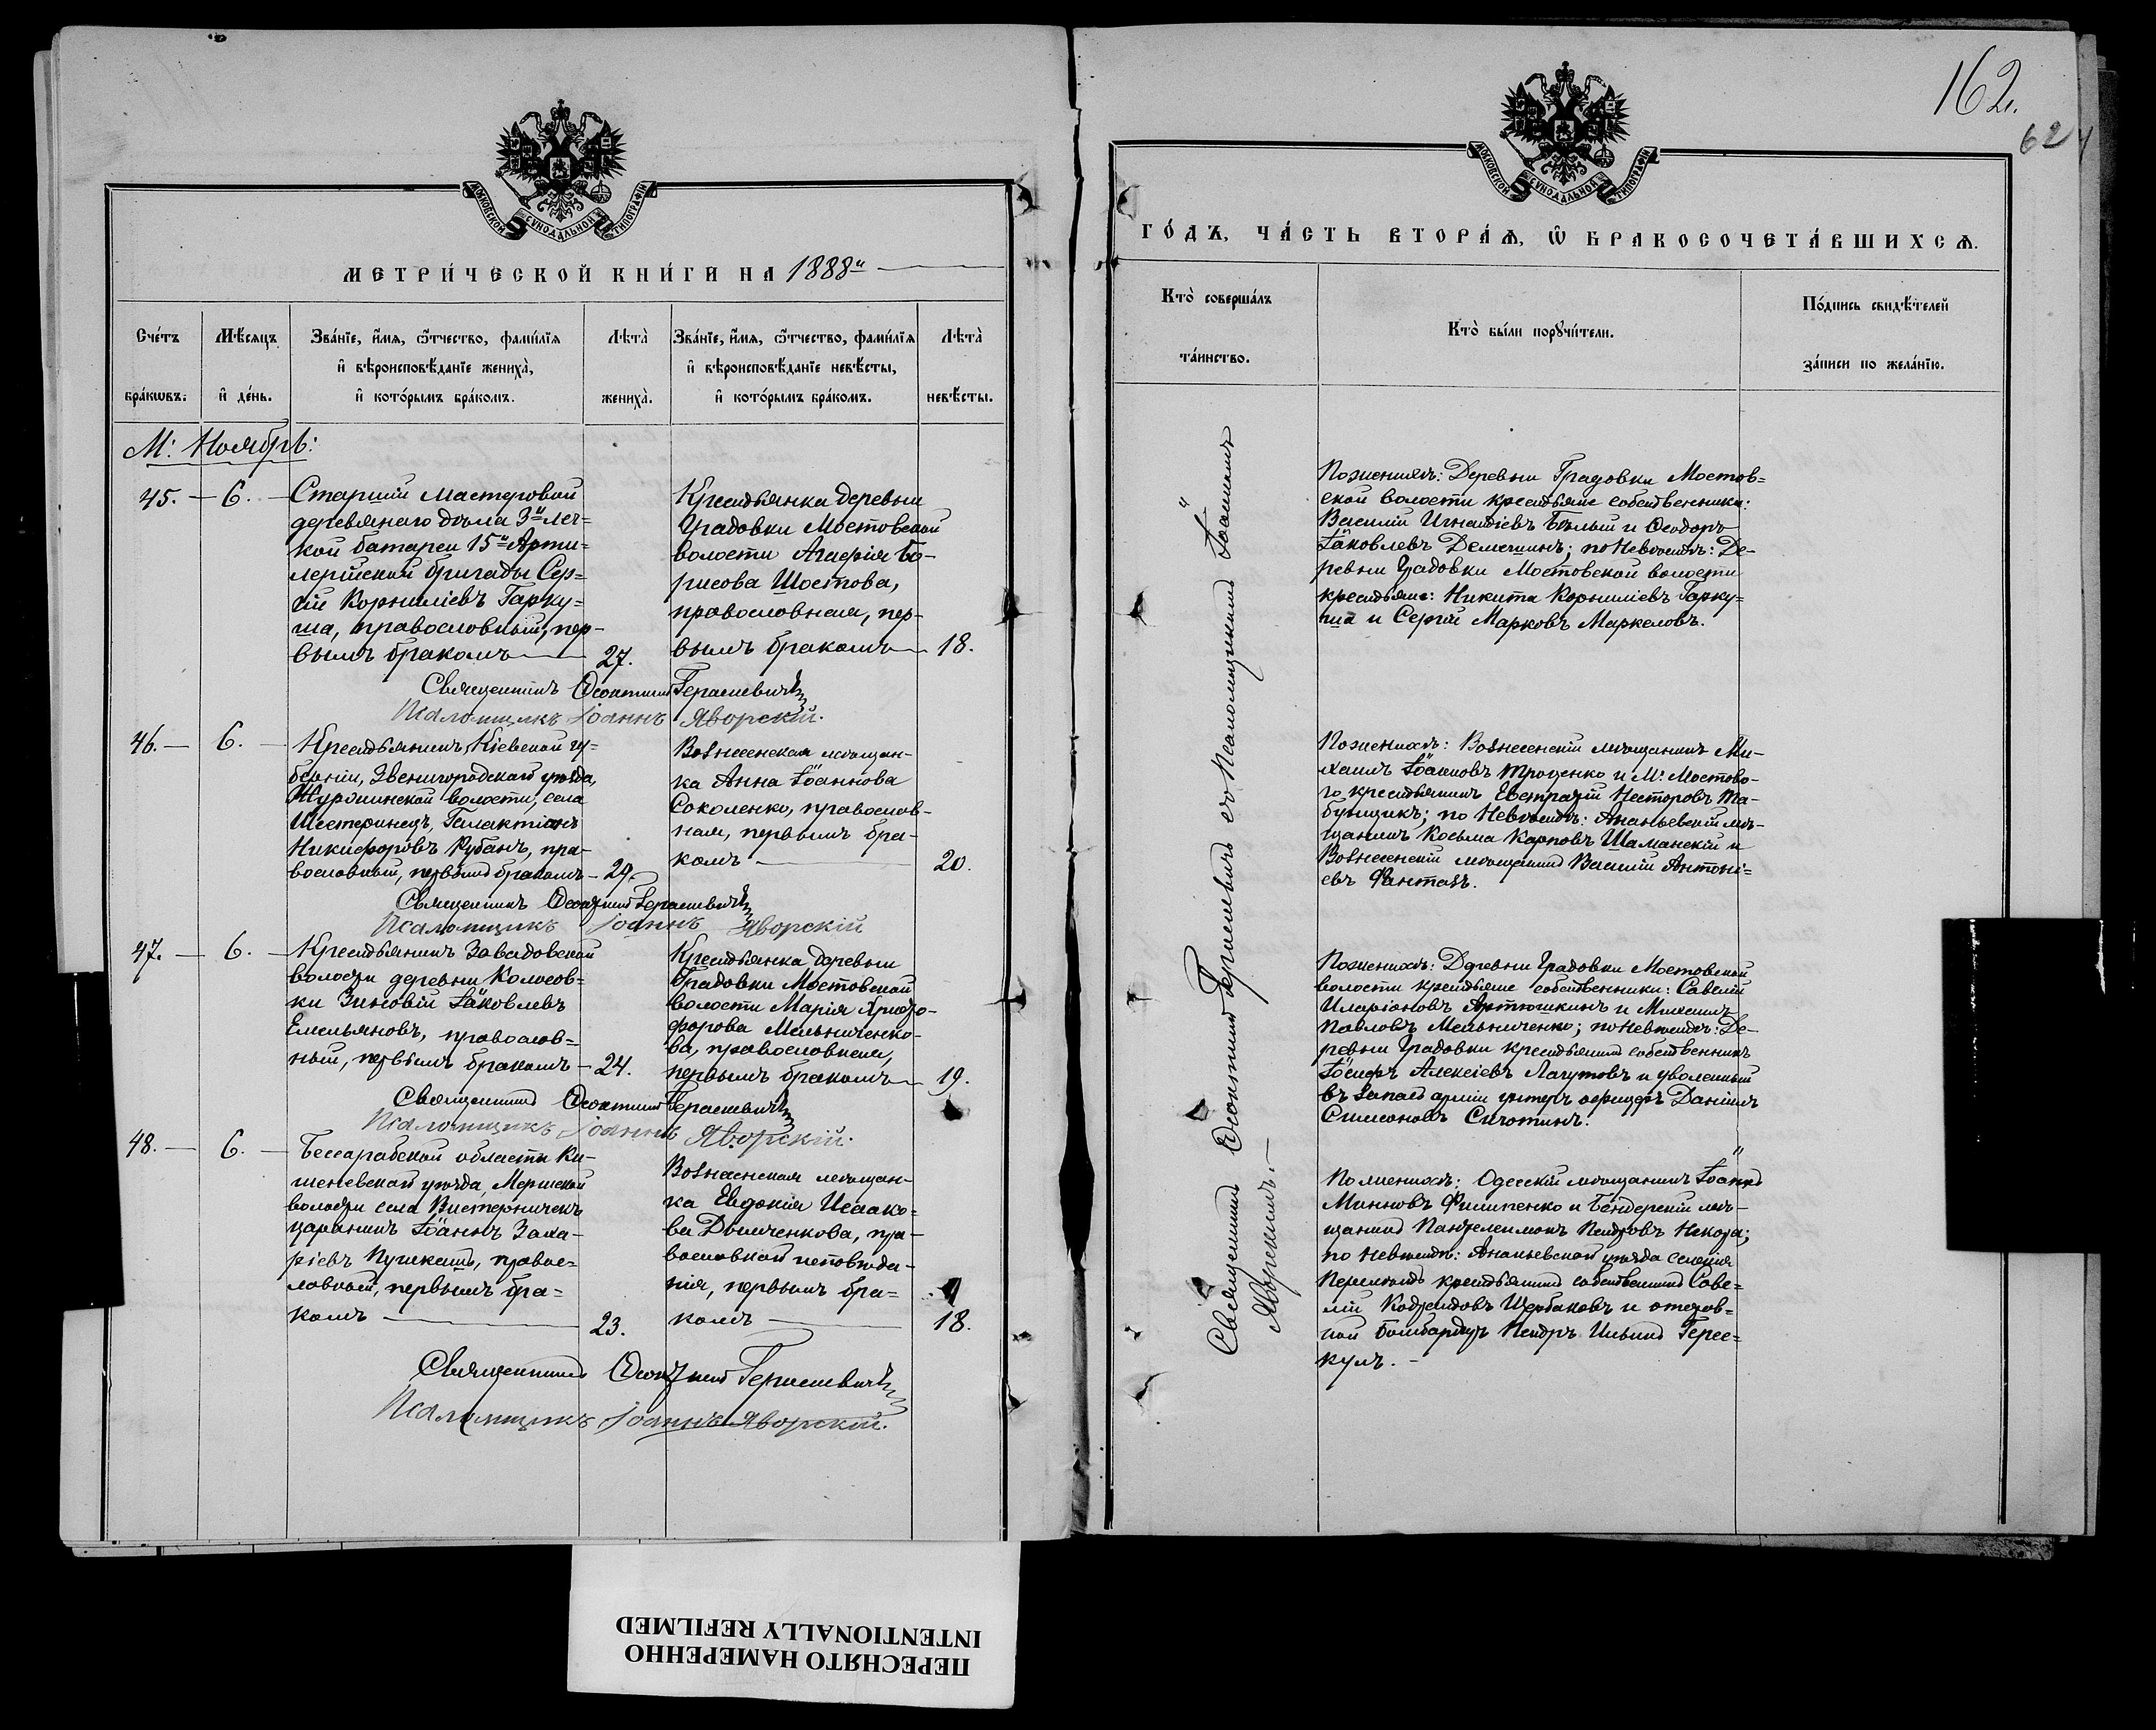 МОСКОВСКОЙ СѴНОДАЛЬНОЙ ТИПОГРАФІИ
МЕТРИ́ЧЕСКОЙ КНИ́ГИ НА 1888й
Сче́тъ бра́кѡвъ.
Мѣ́сяцъ и҆ де́нь.
Зва́нїе, и҆́мѧ, ѻ҆́тчество, фами́лїѧ
и҆ вѣроисповѣ́данїе жениха̀,
и҆ кото́рымъ бра́комъ.
Лѣта̀ жениха̀.
Зва́нїе, и҆́мѧ, ѻ҆́тчество, фами́лїѧ
и҆ вѣроисповѣ́данїе невѣ́сты,
и҆ кото́рымъ бра́комъ.
Лѣта̀ невѣ́сты.
М: Ноябрь:
45. — 6. —
Старшій мастеровой
деревянаго дѣла 3й лег=
кой батареи 15й Арти=
лерійской бригады Сер=
гій Корниліевъ Гарку=
ша, православный, пер-
вымъ бракомъ — 27.
Крестьянка деревни
Градовки Мостовской
волости Агафія Бо-
рисова Шостова,
православная, пер-
вымъ бракомъ — 18.
Священникъ Ѳеоктистъ Герасимевичъ
Псаломщикъ Іоаннъ Яворскій.
46. — 6. —
Крестьянинъ Кіевской гу=
берніи, Звенигородскаго уѣзда,
волости, села
Шестеринецъ, Галактіонъ
Никифоровъ Рубанъ, пра-
вославный, первымъ бракомъ — 29.
Вознесенская мѣщан-
ка Анна Іоаннова
Соколенко, православ-
ная, первымъ бра-
комъ — 20.
Священникъ Ѳеоктистъ Герасимевичъ
Псаломщикъ Іоаннъ Яворскій
47. — 6. —
Крестьянинъ Завадовской
волости деревни Колосов-
ки Зиновій Іаковлевъ
Емельяновъ, православ=
ный, первымъ бракомъ — 24.
Крестьянка деревни
Градовки Мостовской
волости Марія Христо-
форова Мельниченко-
ва, православная,
первымъ бракомъ — 19.
Священникъ Ѳеоктистъ Герасимевичъ
Псаломщикъ Іоаннъ Яворскій.
48. — 6. —
Бессарабской области Ки-
шеневскаго уѣзда,
волости села Вистерниченъ
царанинъ Іоаннъ Заха-
ріевъ Пушкашъ, правос=
лавный, первымъ бра=
комъ — 23.
Вознесенская мѣщан-
ка Евдокія Исаако=
ва Дьяченкова, пра-
вославнаго исповѣда-
нія, первымъ бра=
комъ — 18.
Священникъ Ѳеоктистъ Герасимевичъ
Псаломщикъ Іоаннъ Яворскій.
162.
624
МОСКОВСКОЙ СѴНОДАЛЬНОЙ ТИПОГРАФІИ
ГО́ДЪ, ЧА́СТЬ ВТОРА́Ѧ, Ѡ҆ БРАКОСОЧЕТА́ВШИХСѦ.
Кто̀ соверша́лъ та́инство.
Кто̀ бы́ли порꙋчи́тели.
По́дпись свидѣ́телей за́писи по жела́нїю.
Священникъ Ѳеоктистъ Герасимевичъ съ псаломщикомъ Іоанномъ
Яворскимъ. —
По женихѣ: Деревни Градовки Мостов=
ской волости крестьяне собственники:
Василій Игнатіевъ Бѣлый и Ѳеодоръ
Іаковлевъ; по невѣстѣ: Де-
ревни Градовки Мостовской волости
крестьяне: Никита Корниліевъ Гарку=
ша и Сергій Марковъ Маркеловъ.
По женихѣ: Вознесенскій мѣщанинъ Ми-
хаилъ Іоанновъ Троценко и М. Мостово-
го крестьянинъ Евстрафій Несторовъ Та-
бунщикъ; по невѣстѣ: Ананьевскій мѣ-
щанинъ Косьма Карповъ Шаманскій и
Вознесенскій мѣщанинъ Василій Антоні=
евъ Фантазъ.
По женихѣ: Деревни Градовки Мостовской
волости крестьяне собственники: Савелій
Иларіоновъ Артюшкинъ и Михаилъ
Павловъ Мельниченко; по невѣстѣ: Де-
ревни Градовки крестьянинъ собственникъ
Іосифъ Алексіевъ Лагутовъ и уволенный
въ запасъ арміи унтеръ офицеръ Даніилъ
Симеоновъ Сиротинъ.
По женихѣ: Одесскій мѣщанинъ Іоаннъ
Миновъ Филипенко и Бендерскій мѣ-
щанинъ Пантелеимонъ Петровъ Некора;
по невѣстѣ: Ананьевскаго уѣзда селенія
крестьянинъ собственникъ Саве=
лій Кодратовъ Щербаковъ и отстав=
ной бомбардиръ Петръ Ильинъ Гере=
кулъ. —
ПЕРЕСНЯТО НАМЕРЕННО
INTENTIONALLY REFILMED